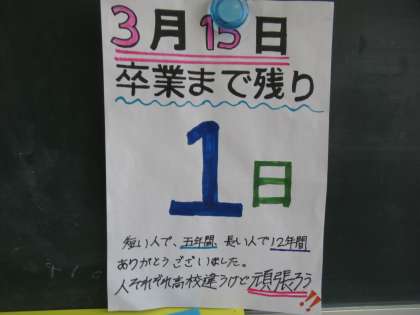 3月15日
卒業まで残り
1日
短い人で、五年間、長い人で12年間
ありがとうございました。
人それぞれ高校違うけど頑張ろう!!